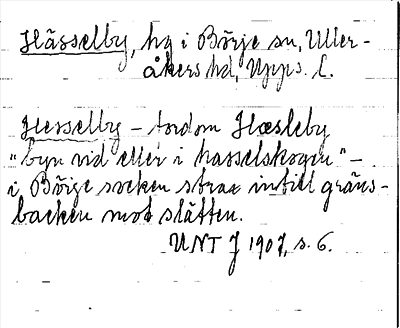 Hässelby, hg i Börje sn, Uller-
åkers hd, Upps. l.
Hesselby – fordom Hæsleby
"byn vid eller i hasselskogen" –
i Börje socken strax intill gräns-
backen mot slätten.
UNT J 1907, s. 6.